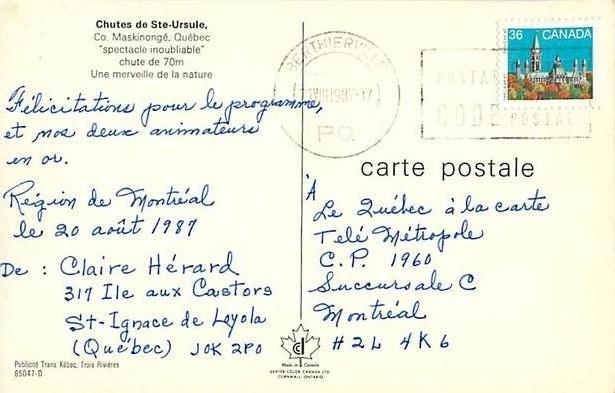 Chutes de Ste-Ursule,
Co. Maskinongé, Québec
"spectacle inoubliable"
chute de 70m
Une merveille de la nature
Félicitations pour le programme,
et nos deux animateurs
en or.
Région de Montréal
le 20 août 1987
De : Claire Hérard
317 Ile aux Castors
St-Ignace de Loyola
(Québec) J0K 2P0
Publicité Trans Kébec, Trois Rivières
85047-D
36 CANADA
BERTHIERVILLE
1987-17
PQ
POSTAL
CODE POSTAL
carte postale
À
Le Québec à la carte
Télé Métropole
C.P. 1960
Succursale C
Montréal
H2L 4K6
Made in Canada
DEXTER COLOR CANADA LTD
CORNWALL, ONTARIO